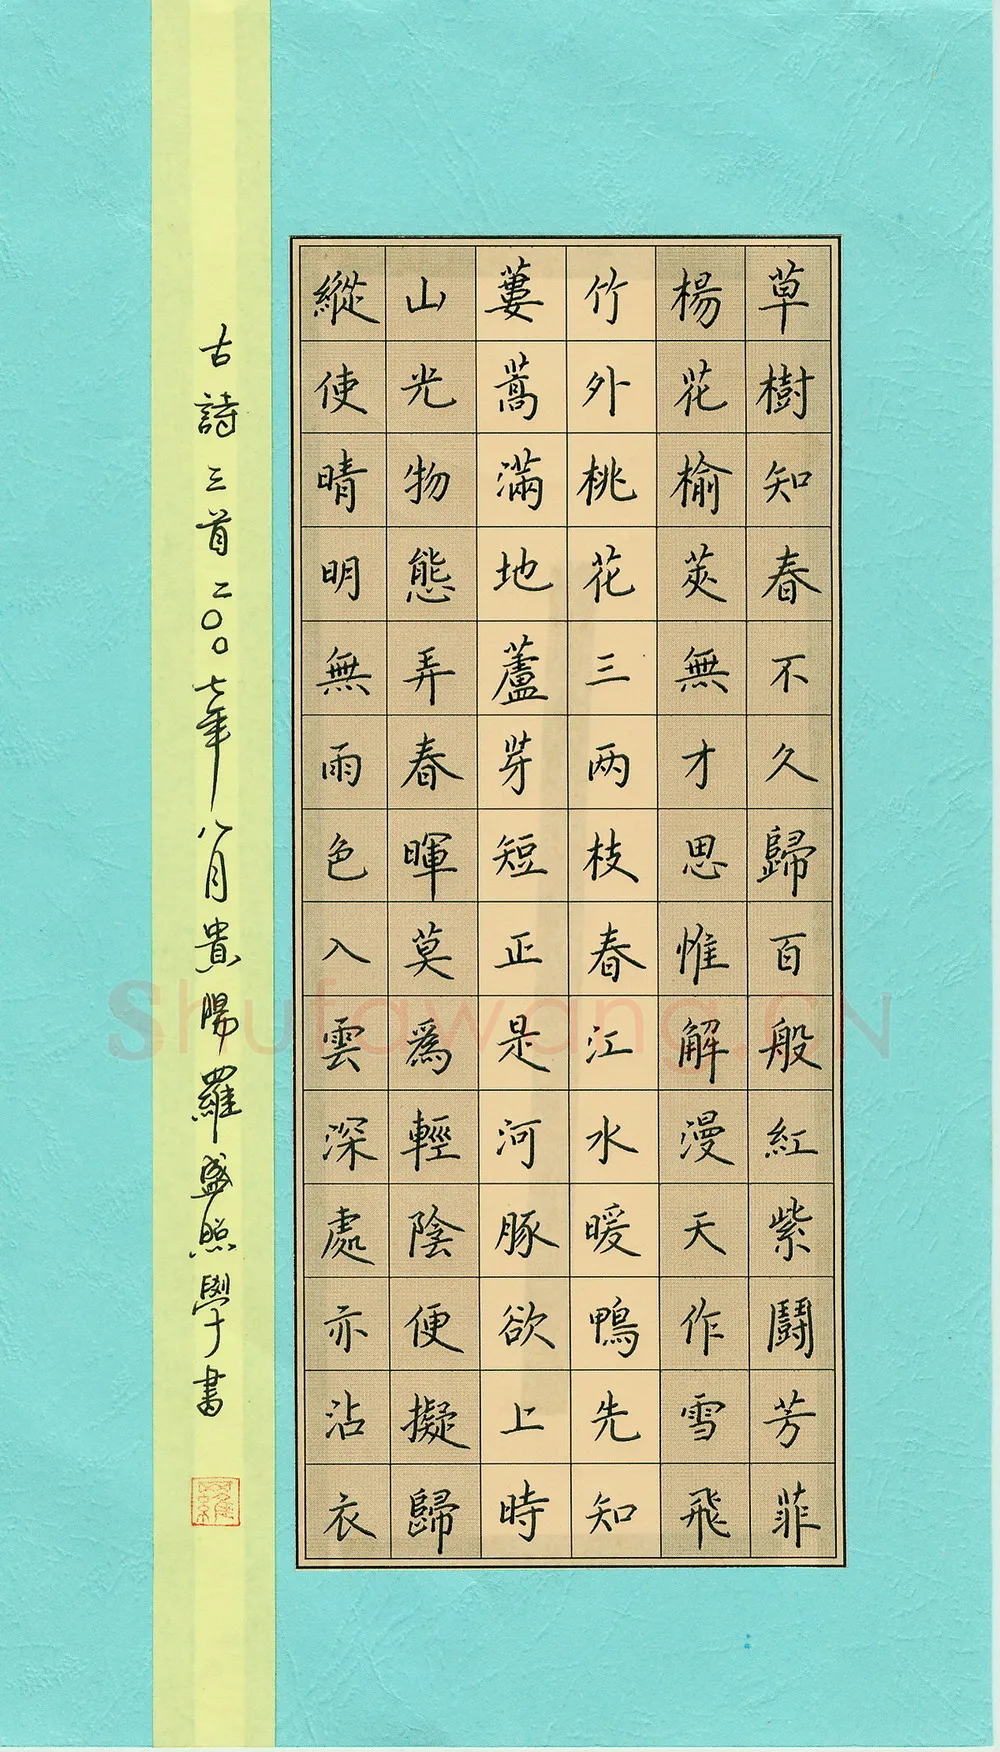 草樹知春不久歸百般紅紫鬭芳菲
楊花榆莢無才思惟解漫天作雪飛
竹外桃花三两枝春江水暖鴨先知
蔞蒿滿地蘆芽短正是河豚欲上時
山光物態弄春暉莫爲輕陰便擬歸
縱使晴明無雨色入雲深處亦沾衣
古詩三首二〇〇七年八月貴陽羅盛照學書
羅
Shufawang.CN